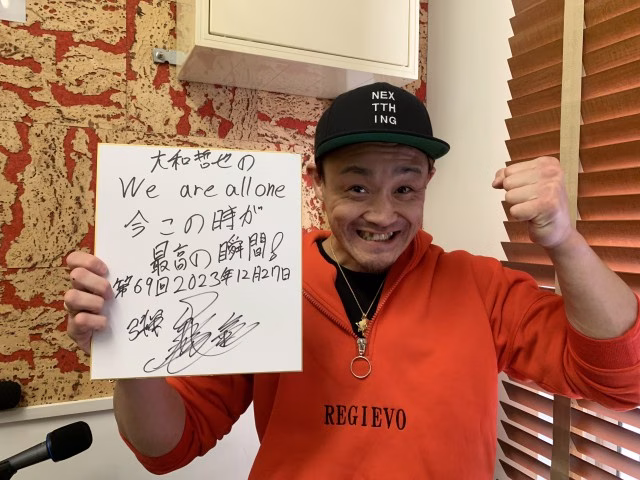 NEX
TTH
ING
大和哲也の
We are all one
今この時が
最高の瞬間!
第69回2023年12月27日
REGIEVO